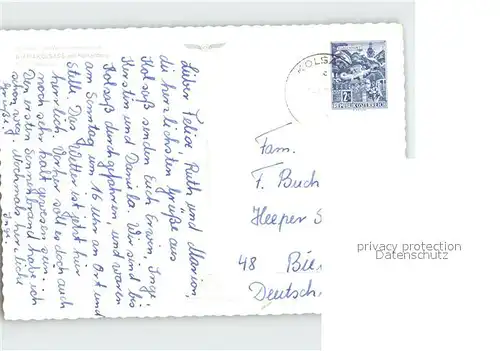 Lieber Felix, Ruth und Marion,
die herzlichsten Grüße aus
Kolsaß senden Euch Erwin, Inge,
Kerstin und Daniela. Wir sind bis
Kolsaß durchgefahren, und waren
am Sonntag um 16 Uhr an Ort und
Stelle. Das Wetter ist jetzt hier
herrlich. Vorher soll es doch auch
noch sehr kalt gewesen sein.
Den ersten Sonnenbrand habe ich
schon weg. Nochmals herzliche
Grüße Inge.
KOLS
REPUBLIK ÖSTERREICH
Fam.
F. Buch
Heeper S
48 Bie
Deutsch
privacy protection
Datenschutz